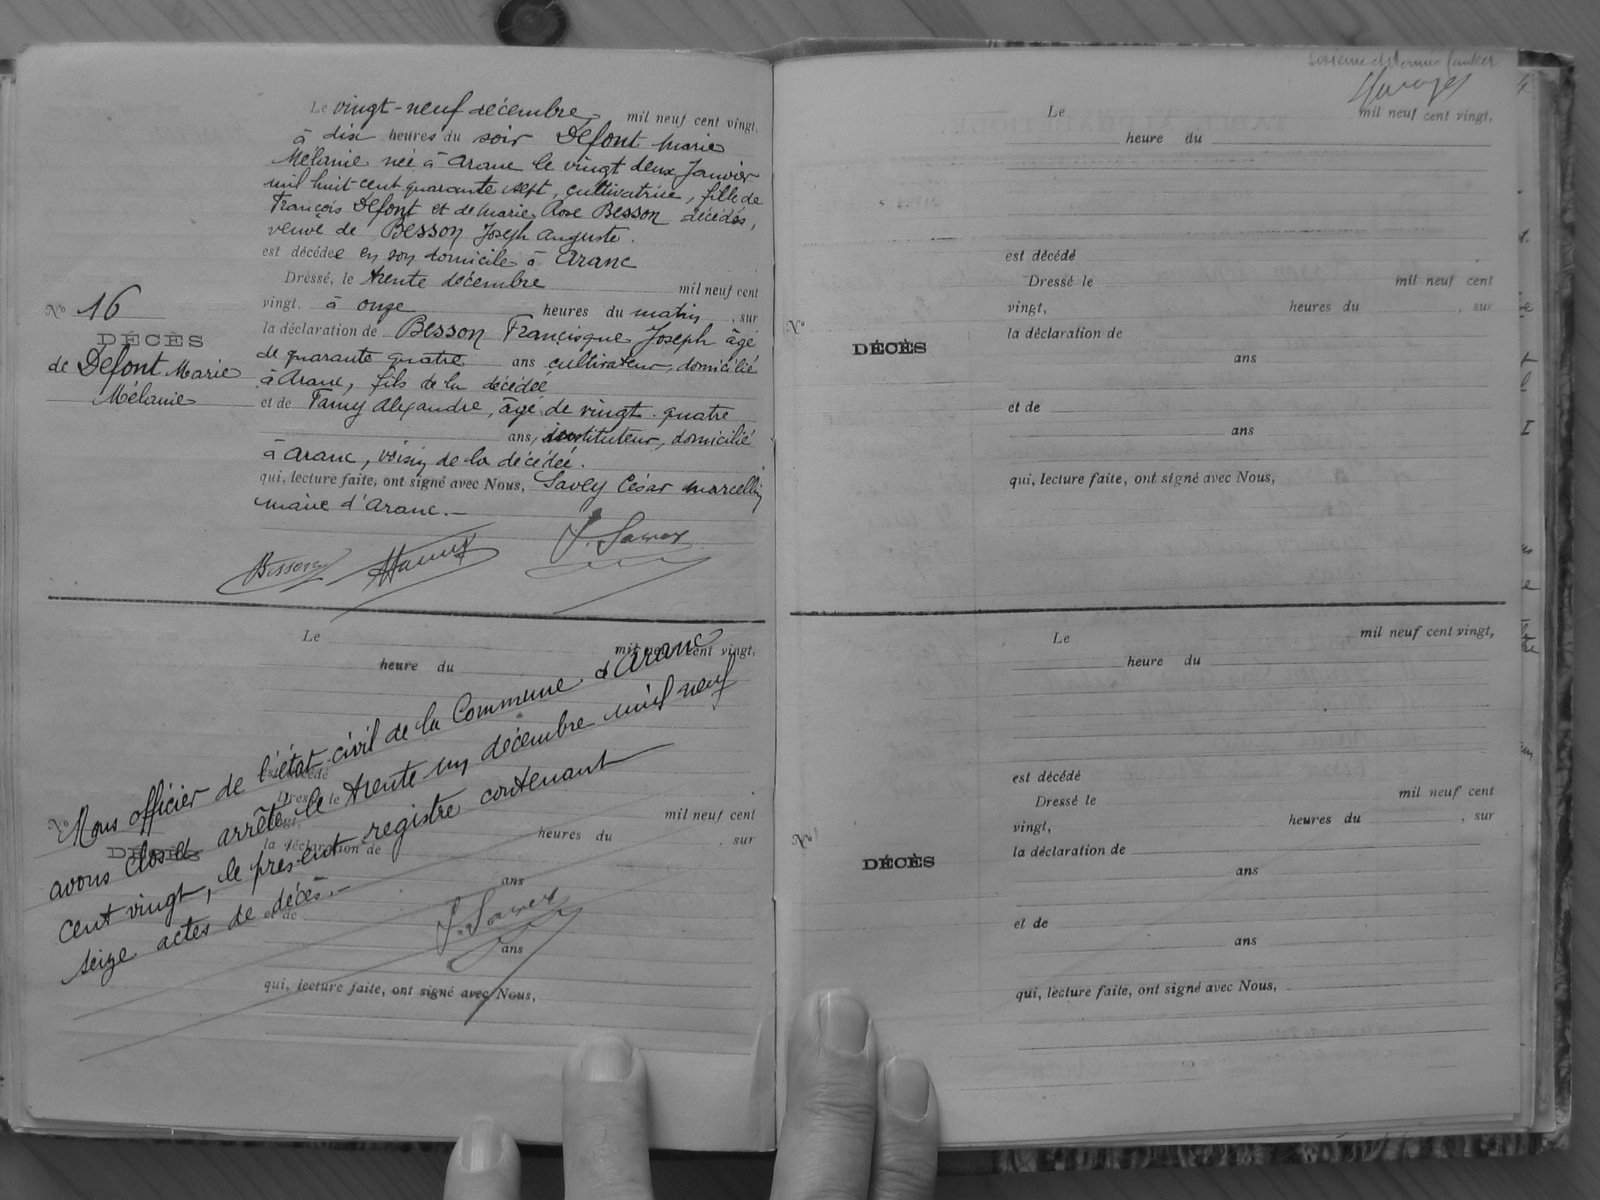 Le vingt-neuf décembre mil neuf cent vingt,
à dix heures du soir Defont Marie
Mélanie née à Aranc le vingt deux Janvier
mil huit cent quarante sept, cultivatrice, fille de
François Defont et de Marie Rose Besson décédés,
veuve de Besson Joseph Auguste.
est décédée en son domicile à Aranc
Dressé, le trente décembre mil neuf cent
vingt. à onze heures du matin, sur
la déclaration de Besson Françisque Joseph âgé
de quarante quatre ans cultivateur, domicilié
à Aranc, fils de la décédée
et de Famy Alexandre, âgé de vingt-quatre
ans, instituteur, domicilié
à Aranc, voisin de la décédée.
qui, lecture faite, ont signé avec Nous, Savey César Marcellin
maire d'Aranc.-
Besson
No 16
DÉCÈS
de Defont Marie
Mélanie
Le mil neuf cent vingt,
heure du
est décédé
Dressé, le mil neuf cent
vingt, heures du , sur
la déclaration de
ans
et de
ans
qui, lecture faite, ont signé avec Nous,
No
DÉCÈS
Nous officier de l'état-civil de la Commune d'Aranc
avons clos et arrêté, le trente un décembre mil neuf
cent vingt, le présent registre contenant
seize actes de décès.-
Le mil neuf cent vingt,
heure du
est décédé
Dressé le mil neuf cent
vingt, heures du , sur
la déclaration de
ans
et de
ans
qui, lecture faite, ont signé avec Nous,
No
DÉCÈS
Le mil neuf cent vingt,
heure du
est décédé
Dressé le mil neuf cent
vingt, heures du , sur
la déclaration de
ans
et de
ans
qui, lecture faite, ont signé avec Nous,
No
DÉCÈS